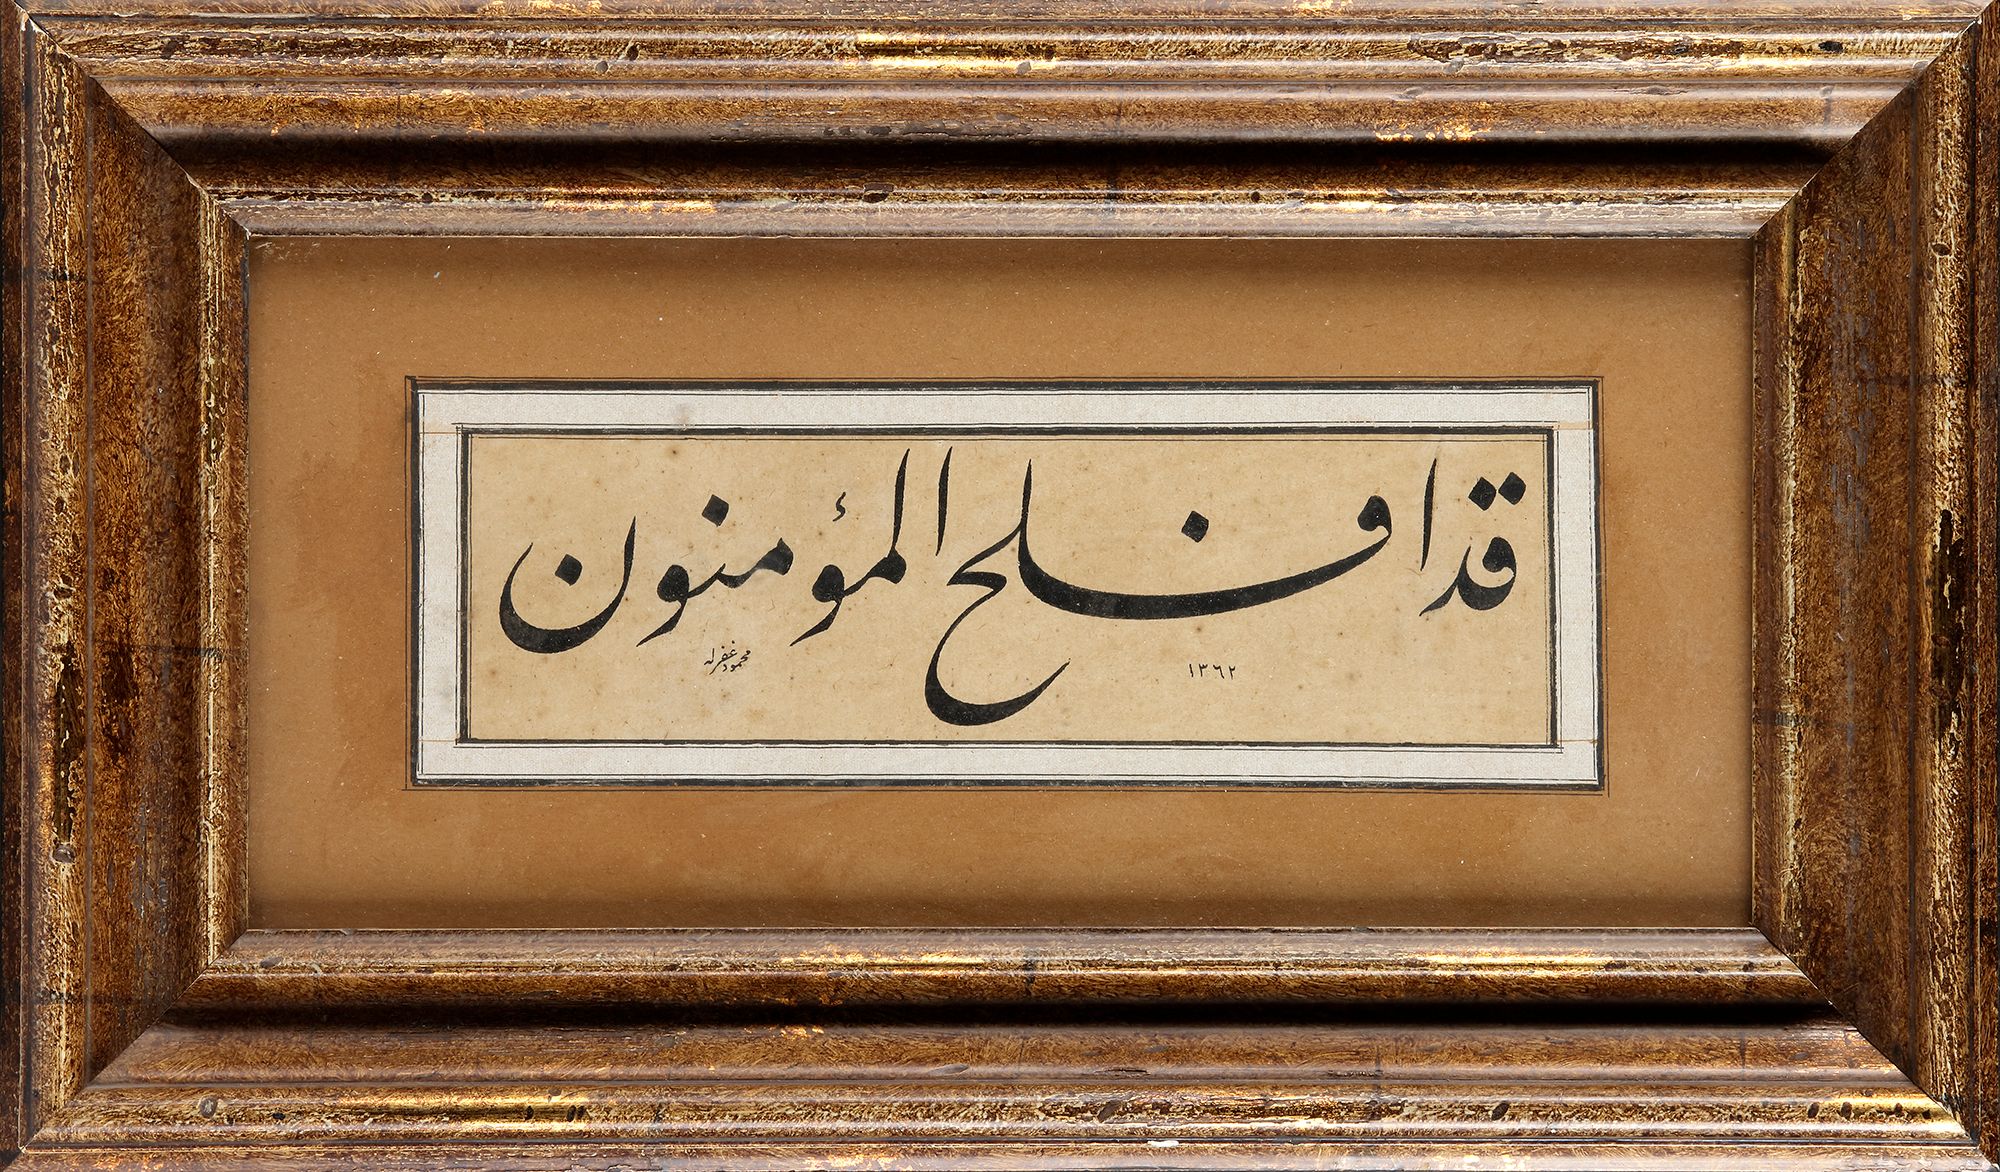 قد افلح المؤمنون
١٣٦٢
محمود غفرله